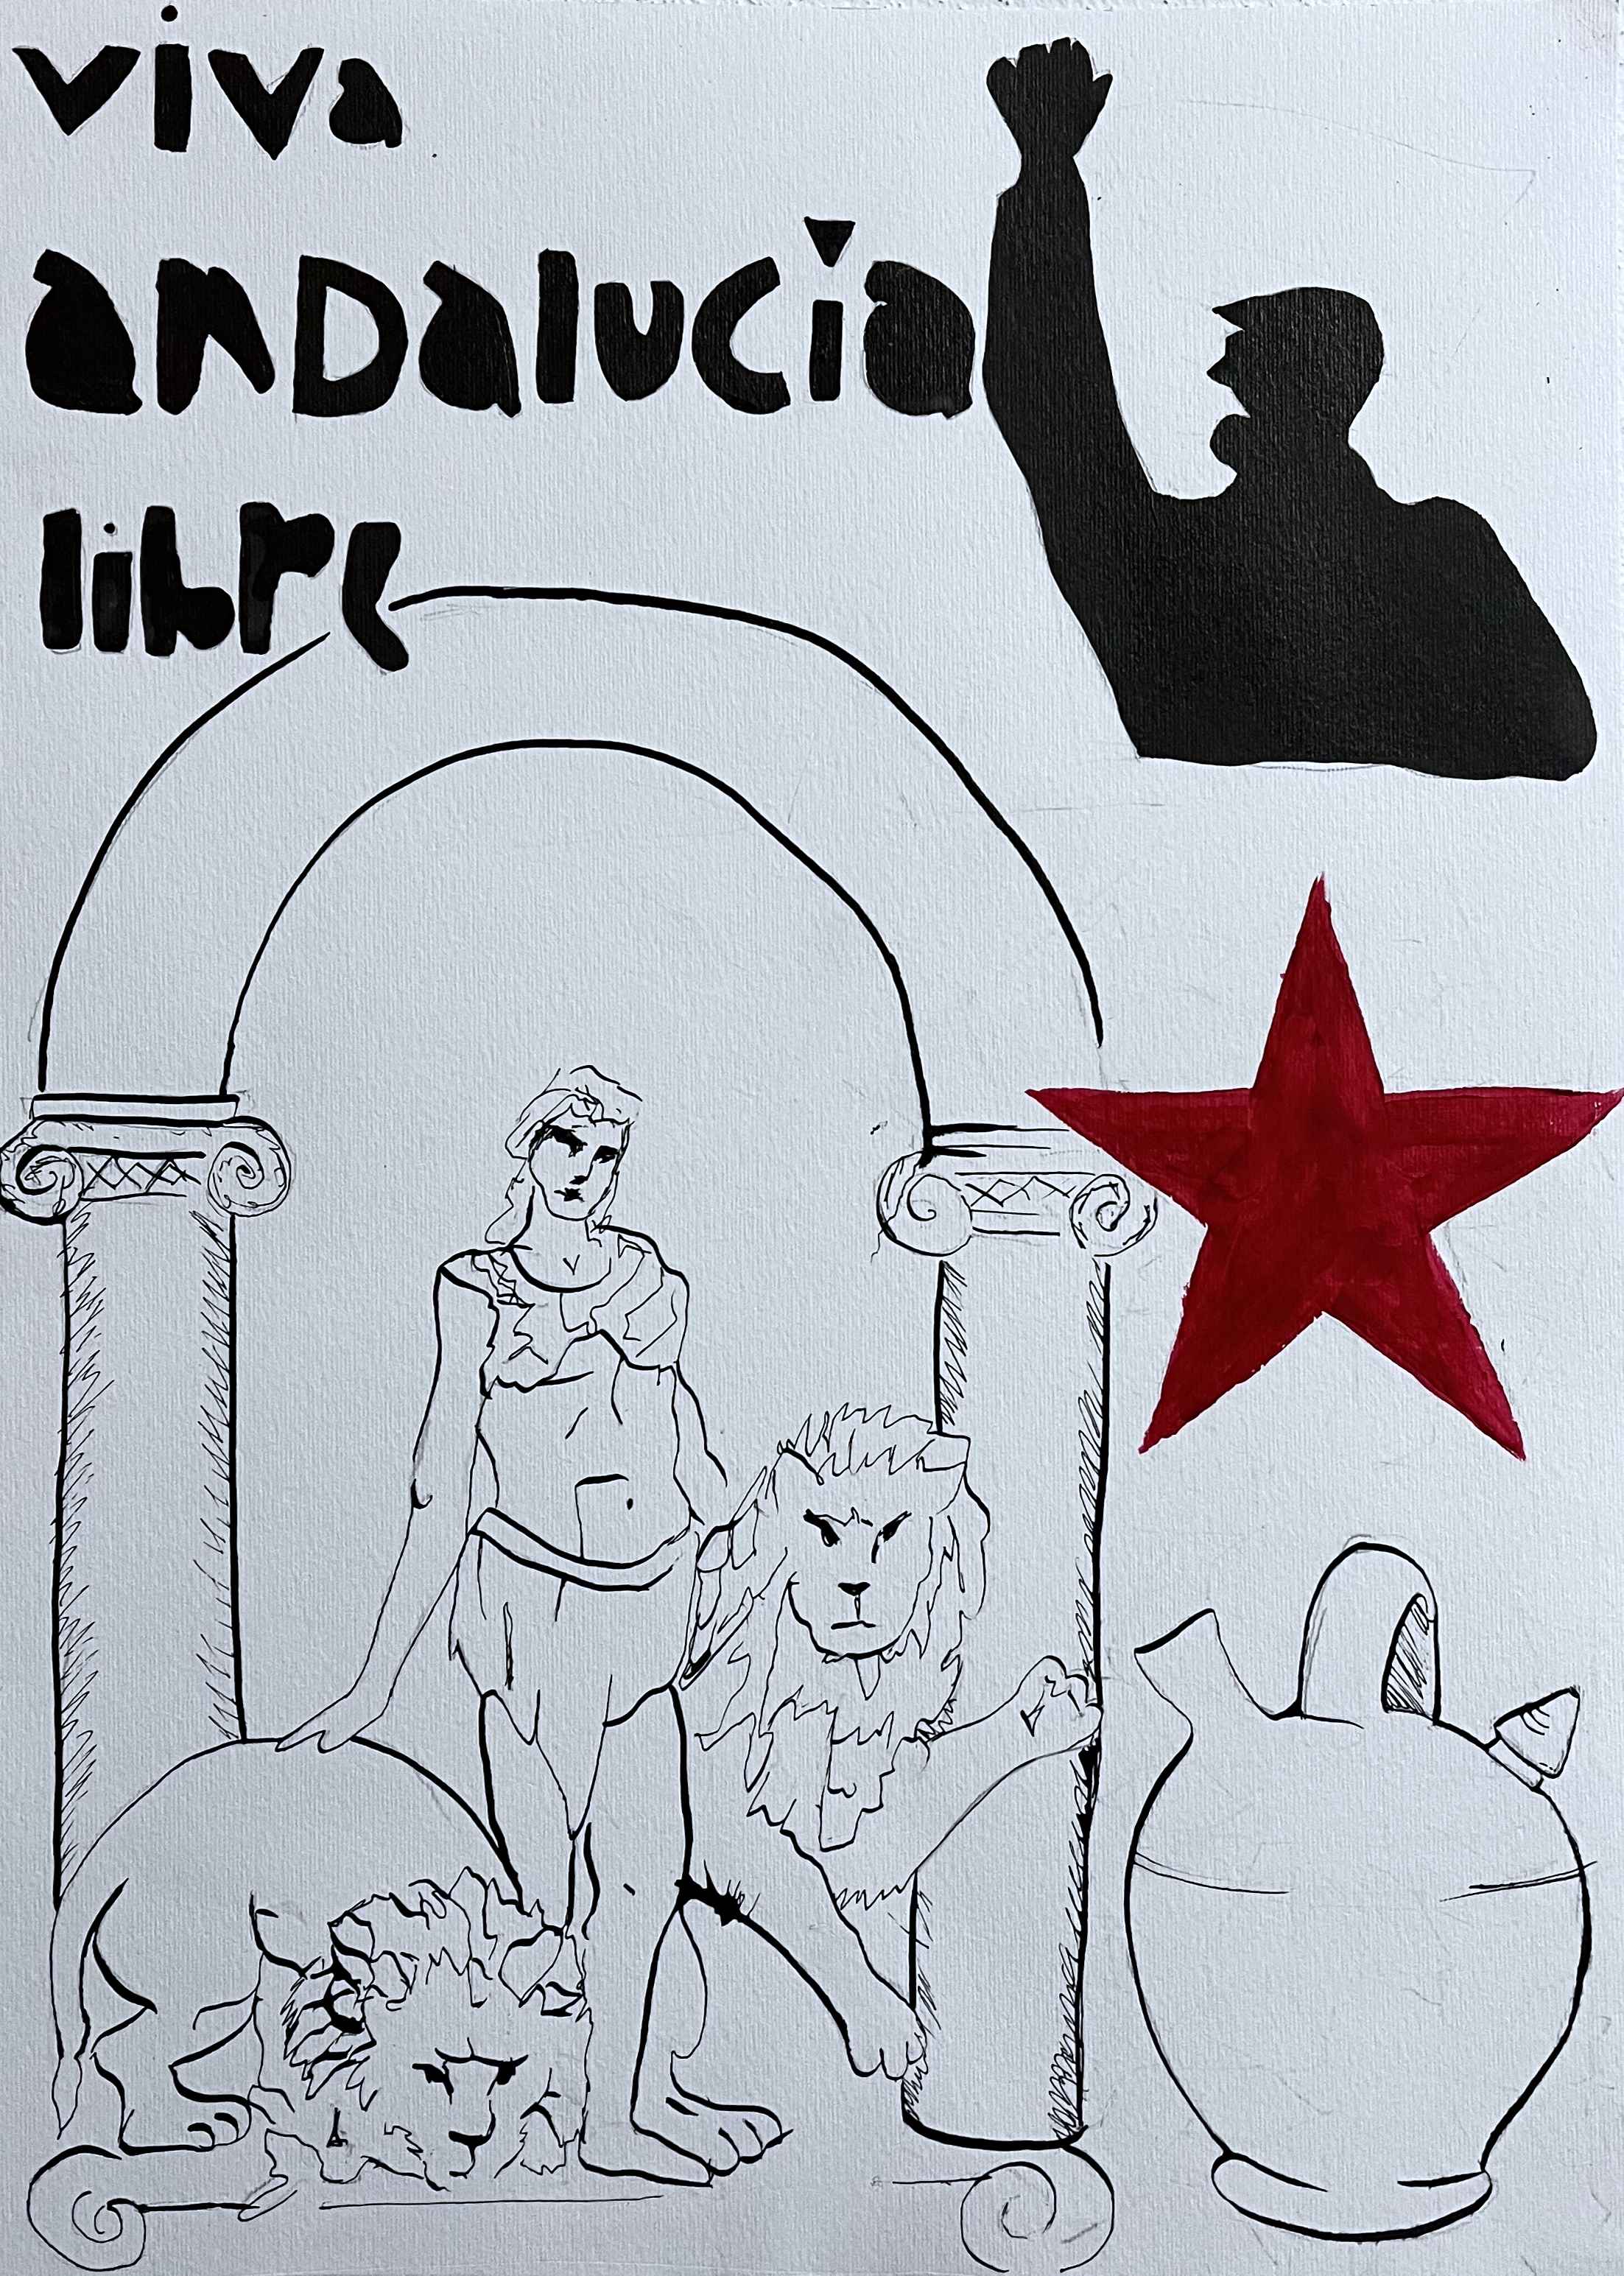 viva
anDalucía
libre